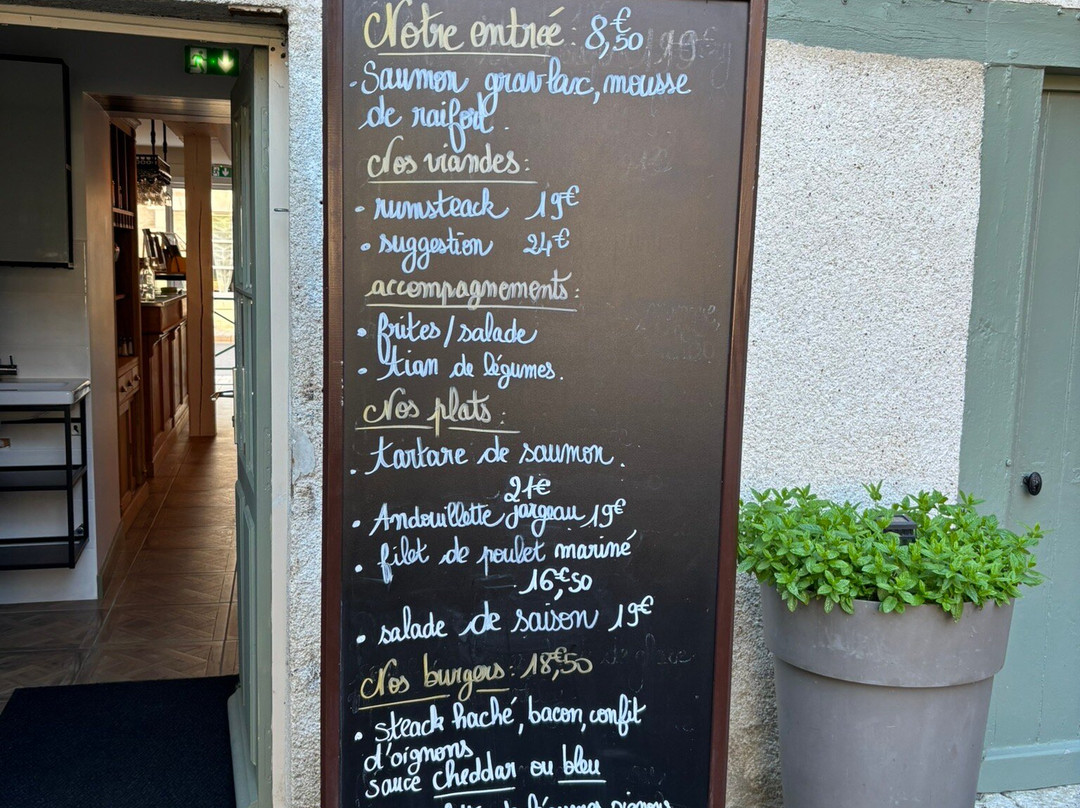 Notre entrée 8,€50
- Saumon gravlax, mousse
de raifort.
Nos viandes :
• rumsteack 19€
• suggestion 24€
accompagnements :
• frites/salade
• tian de légumes.
Nos plats :
. tartare de saumon.
21€
• Andouillette jargeau 19€
• filet de poulet mariné
16,€50
• salade de saison 19€
Nos burgers : 18,€50
• steack haché, bacon, confit
d'oignons
sauce cheddar ou bleu
de légumes, oignons